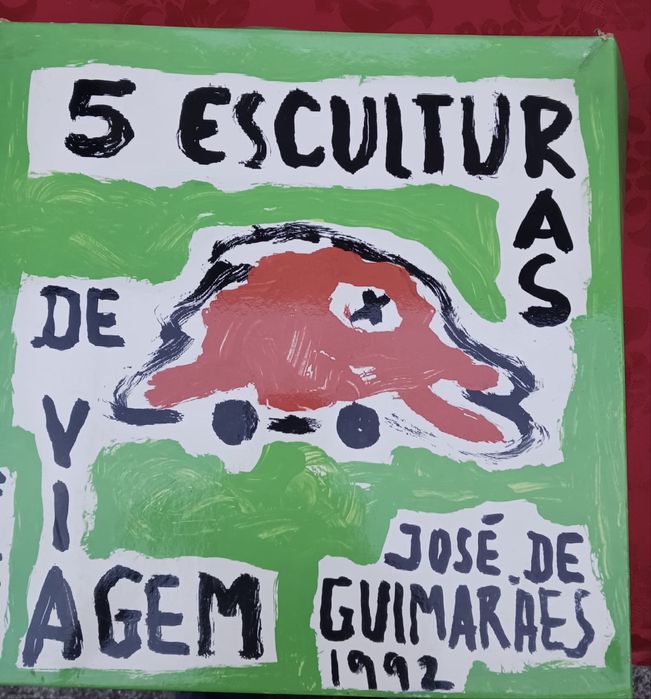 5 ESCULTURAS
DE
VIAGEM
JOSÉ DE
GUIMARÃES
1992